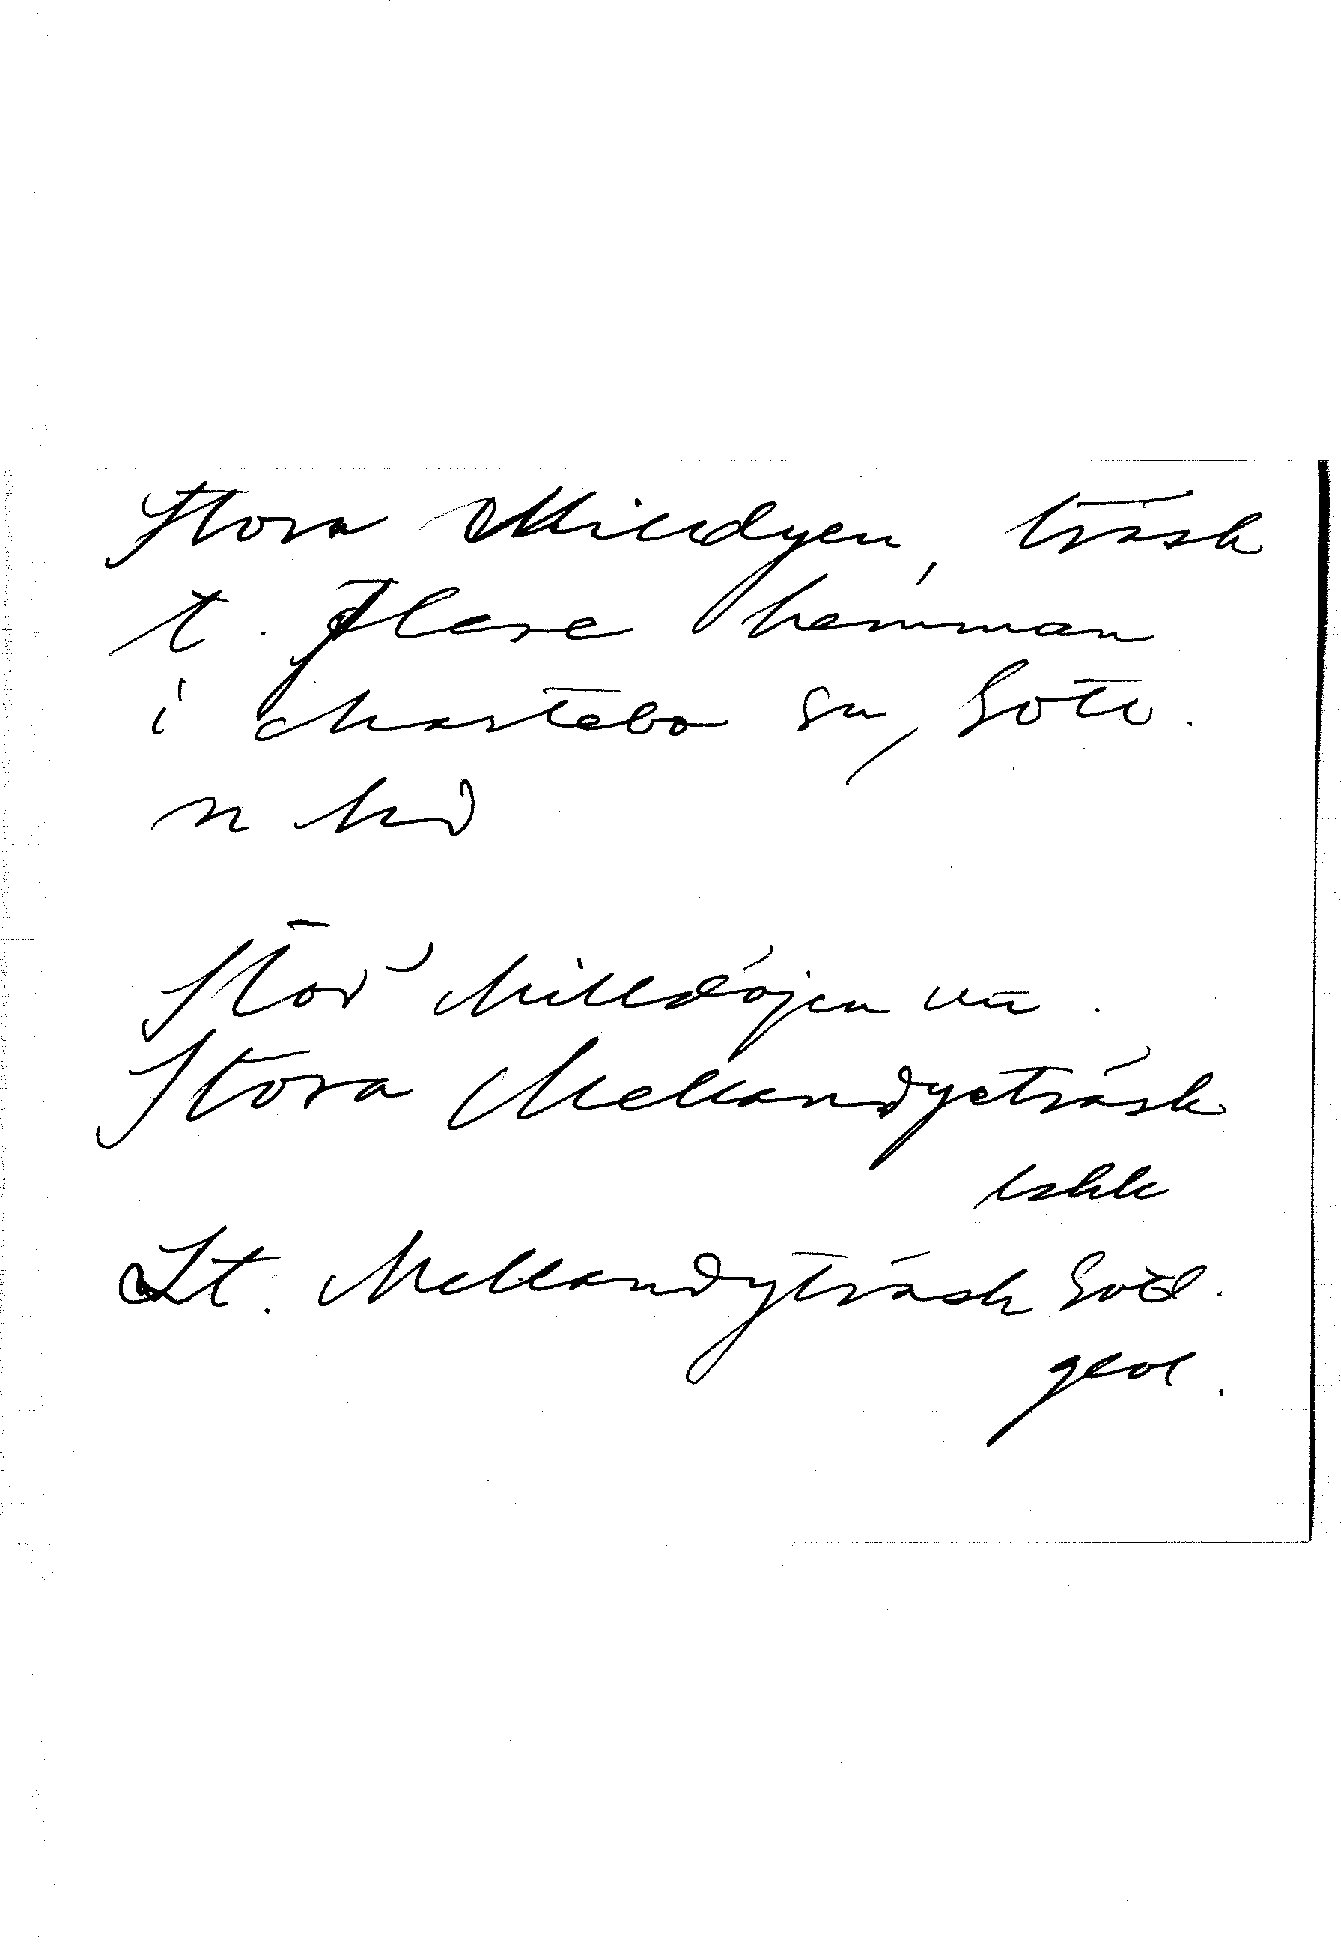 Stora Milldyen, träsk
t. flere hemman
i Martebo sn, Gotl.
n hd
Stor Milldöjen
Stora Mellandyeträsk
Lt. Mellandyträsk Gotl.
geol.